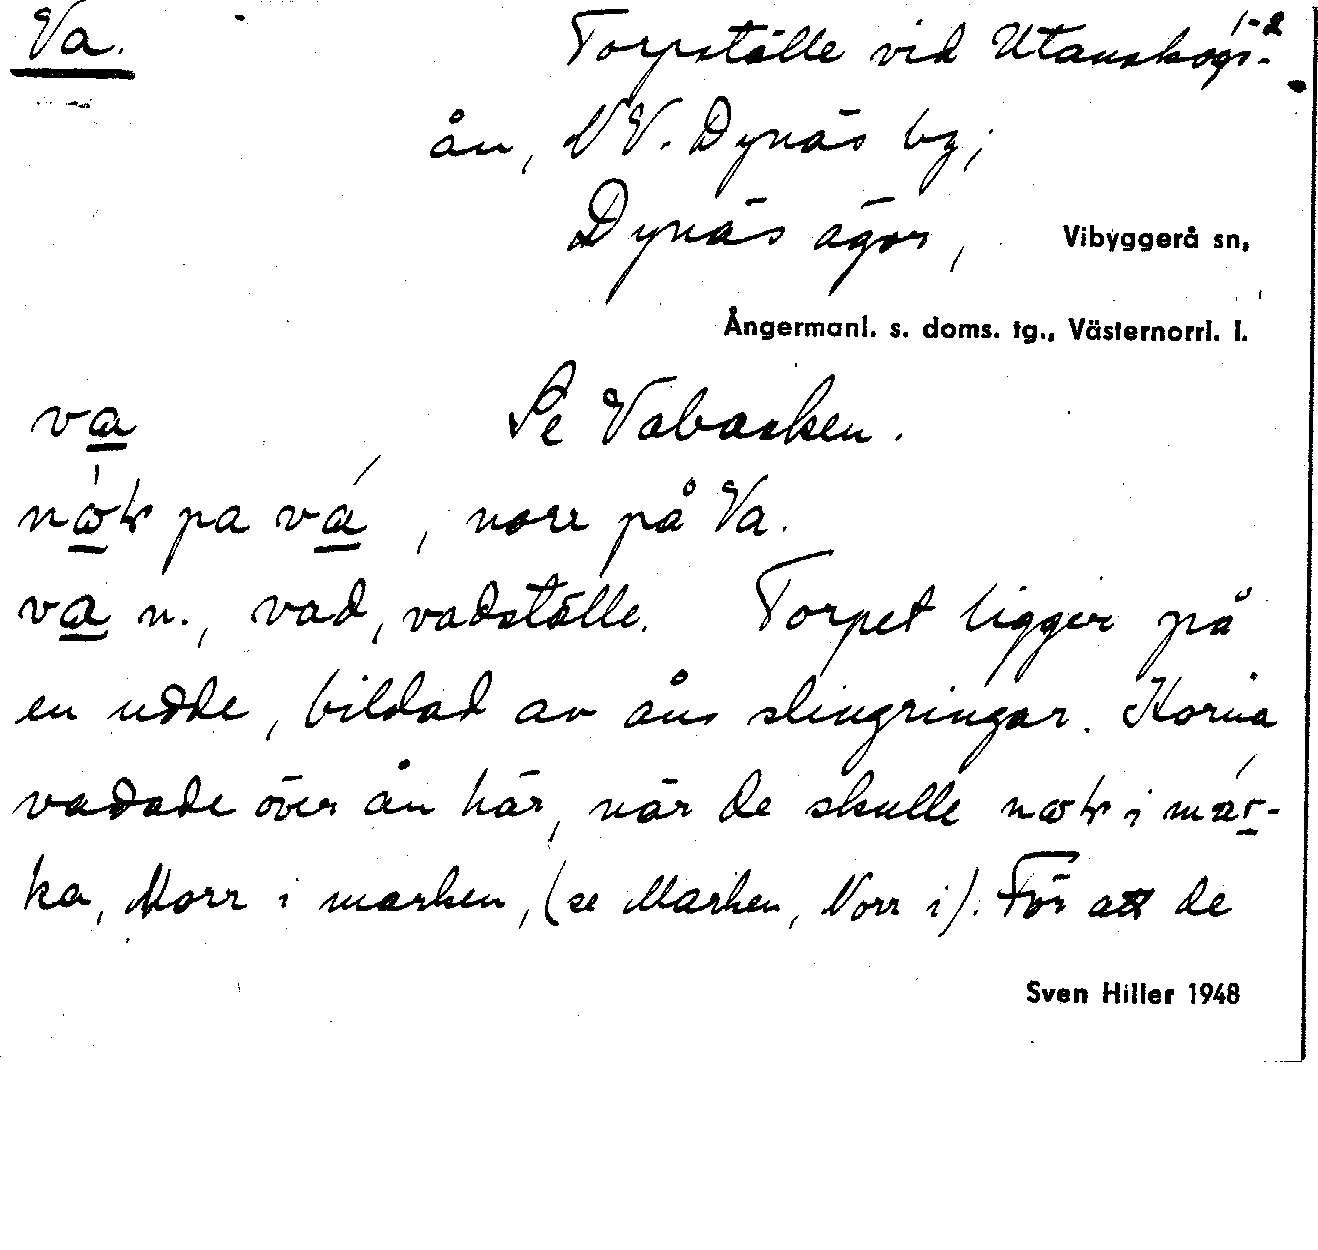 Va. Torpställe vid Utanskogs- 1-2
ån, NV. Dynäs by;
Dynäs ägor, Vibyggerå sn,
Ångermanl. s. doms. tg., Västernorrl. l.
va Se Vabacken.
pa va, norr på Va.
va n., vad, vadställe. Torpet ligger på
en udde, bildad av åns slingringar. Korna
vadade över ån här, när de skulle i mar-
ka, Norr i marken, (se Marken, Norr i). För att de
Sven Hiller 1948